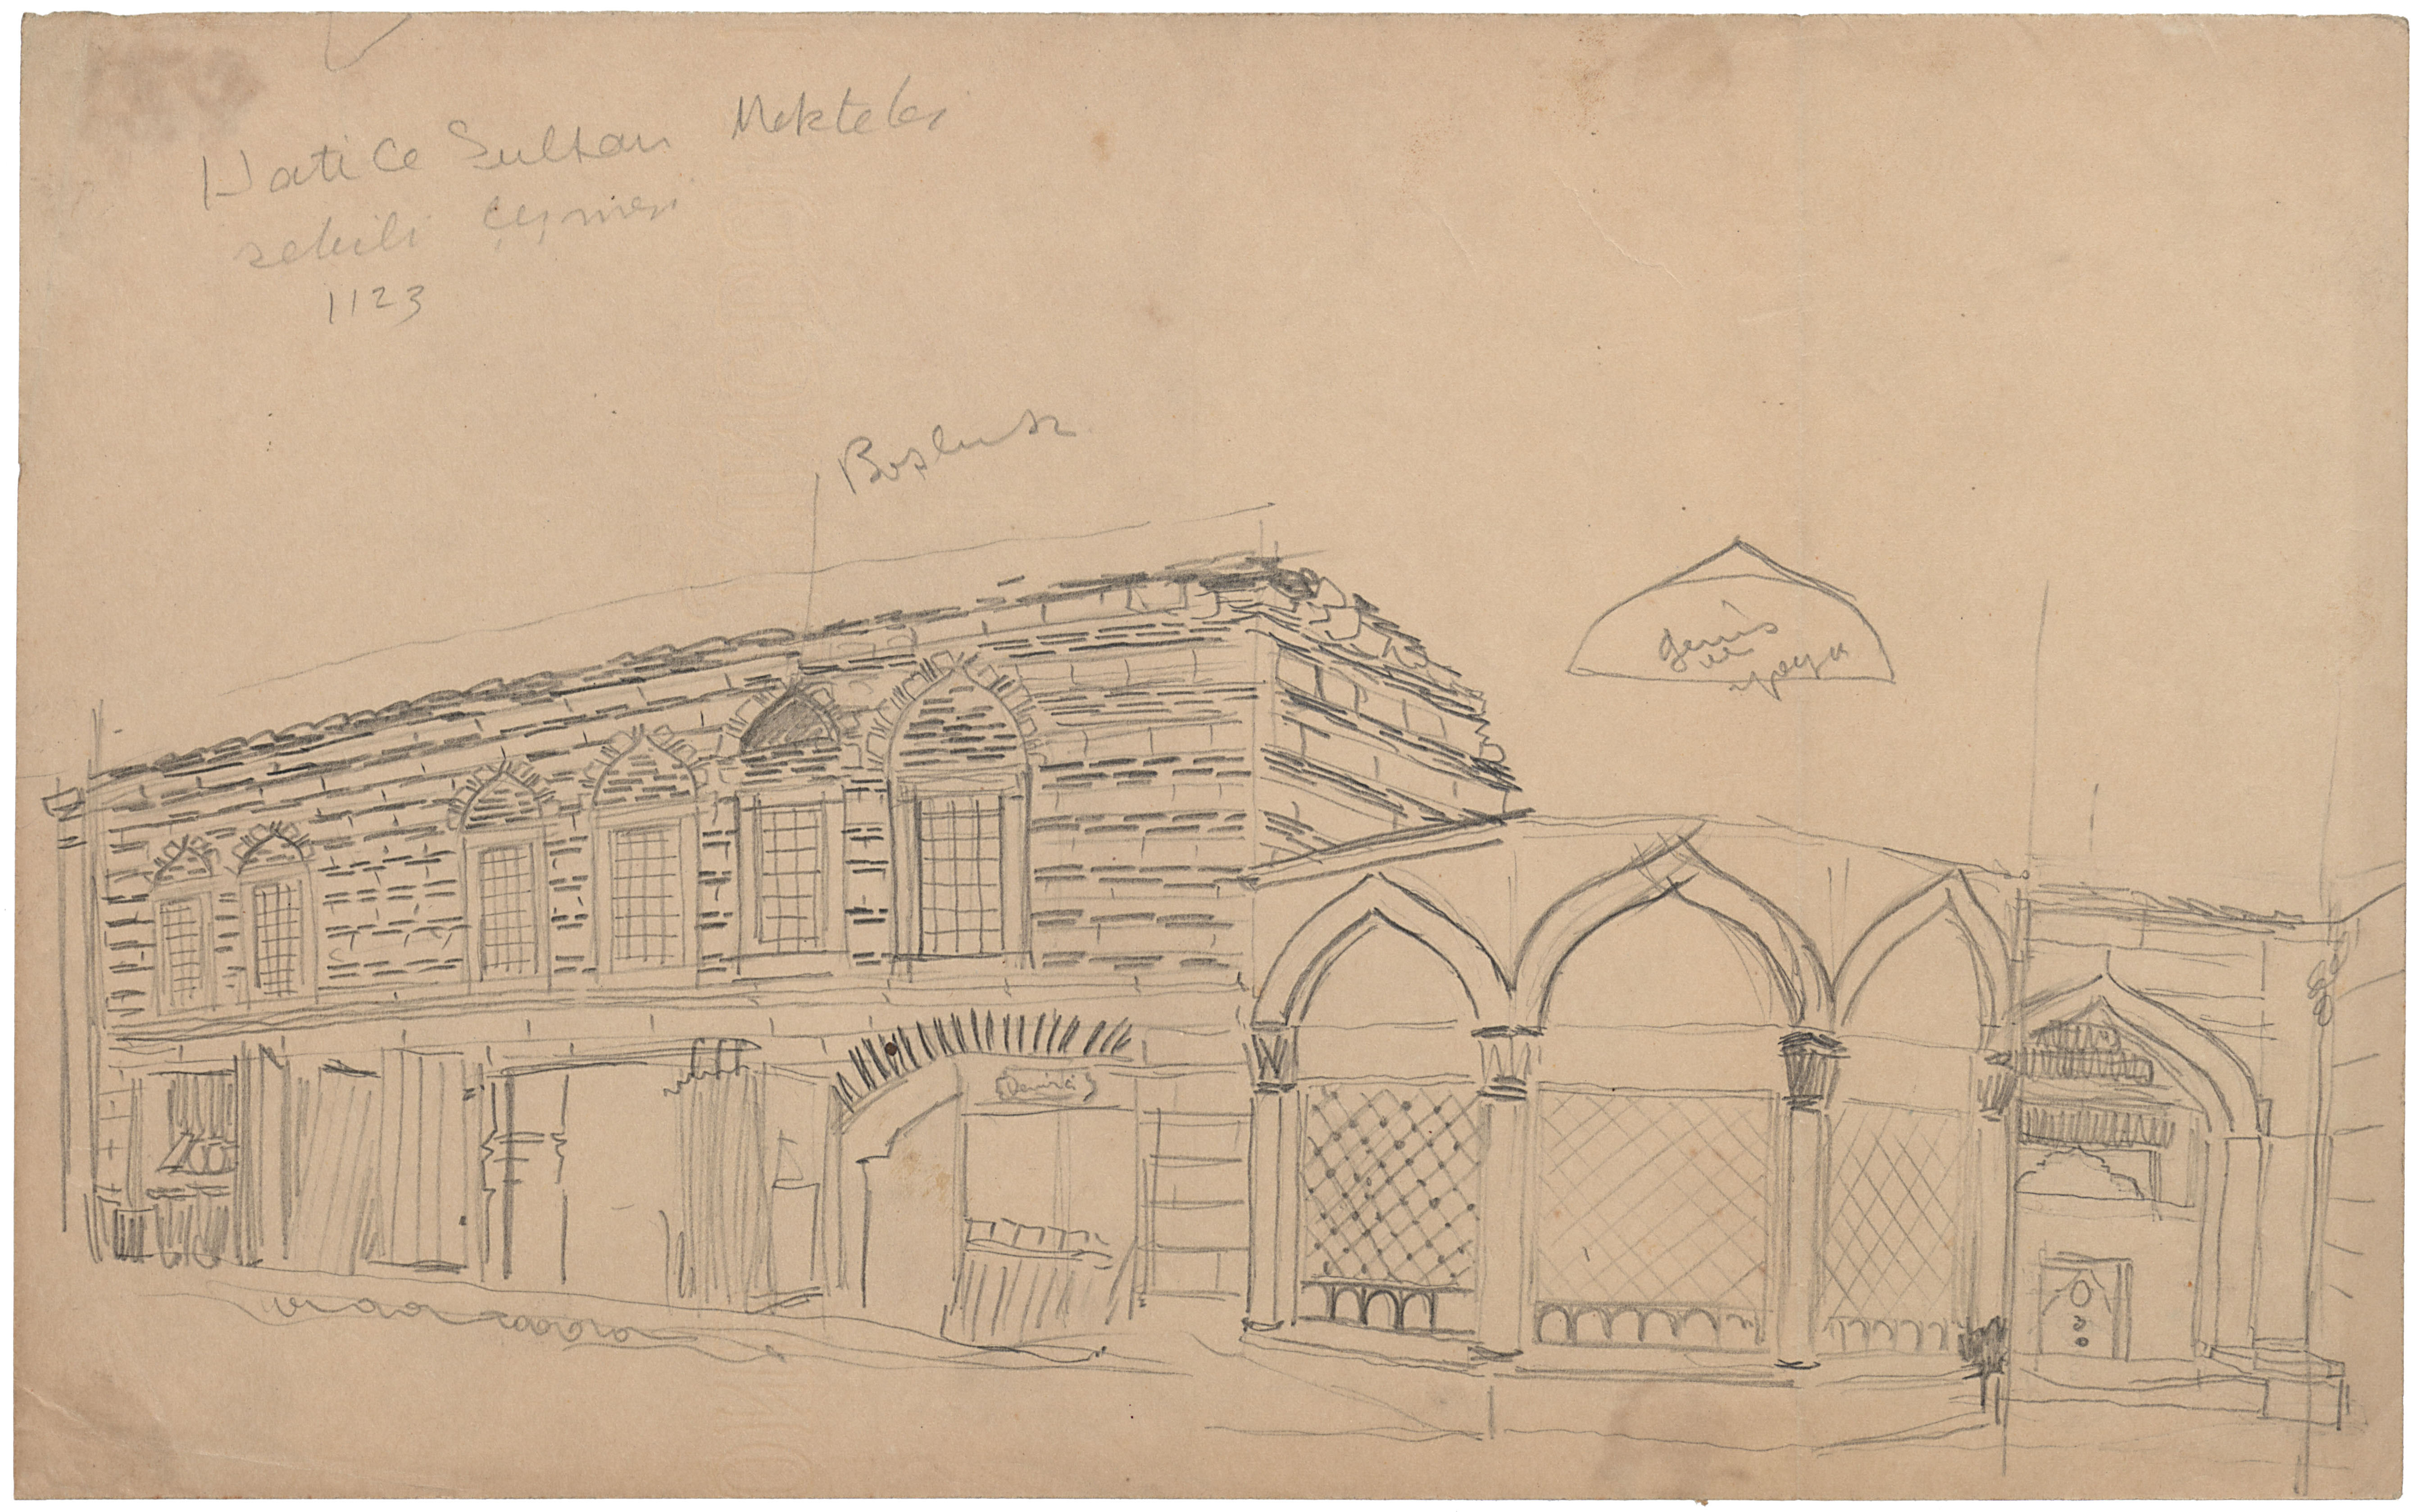 Hatice Sultan Mektebi
sebili Çeşmesi
1123
Boşluk
geniş
ve
Demirci